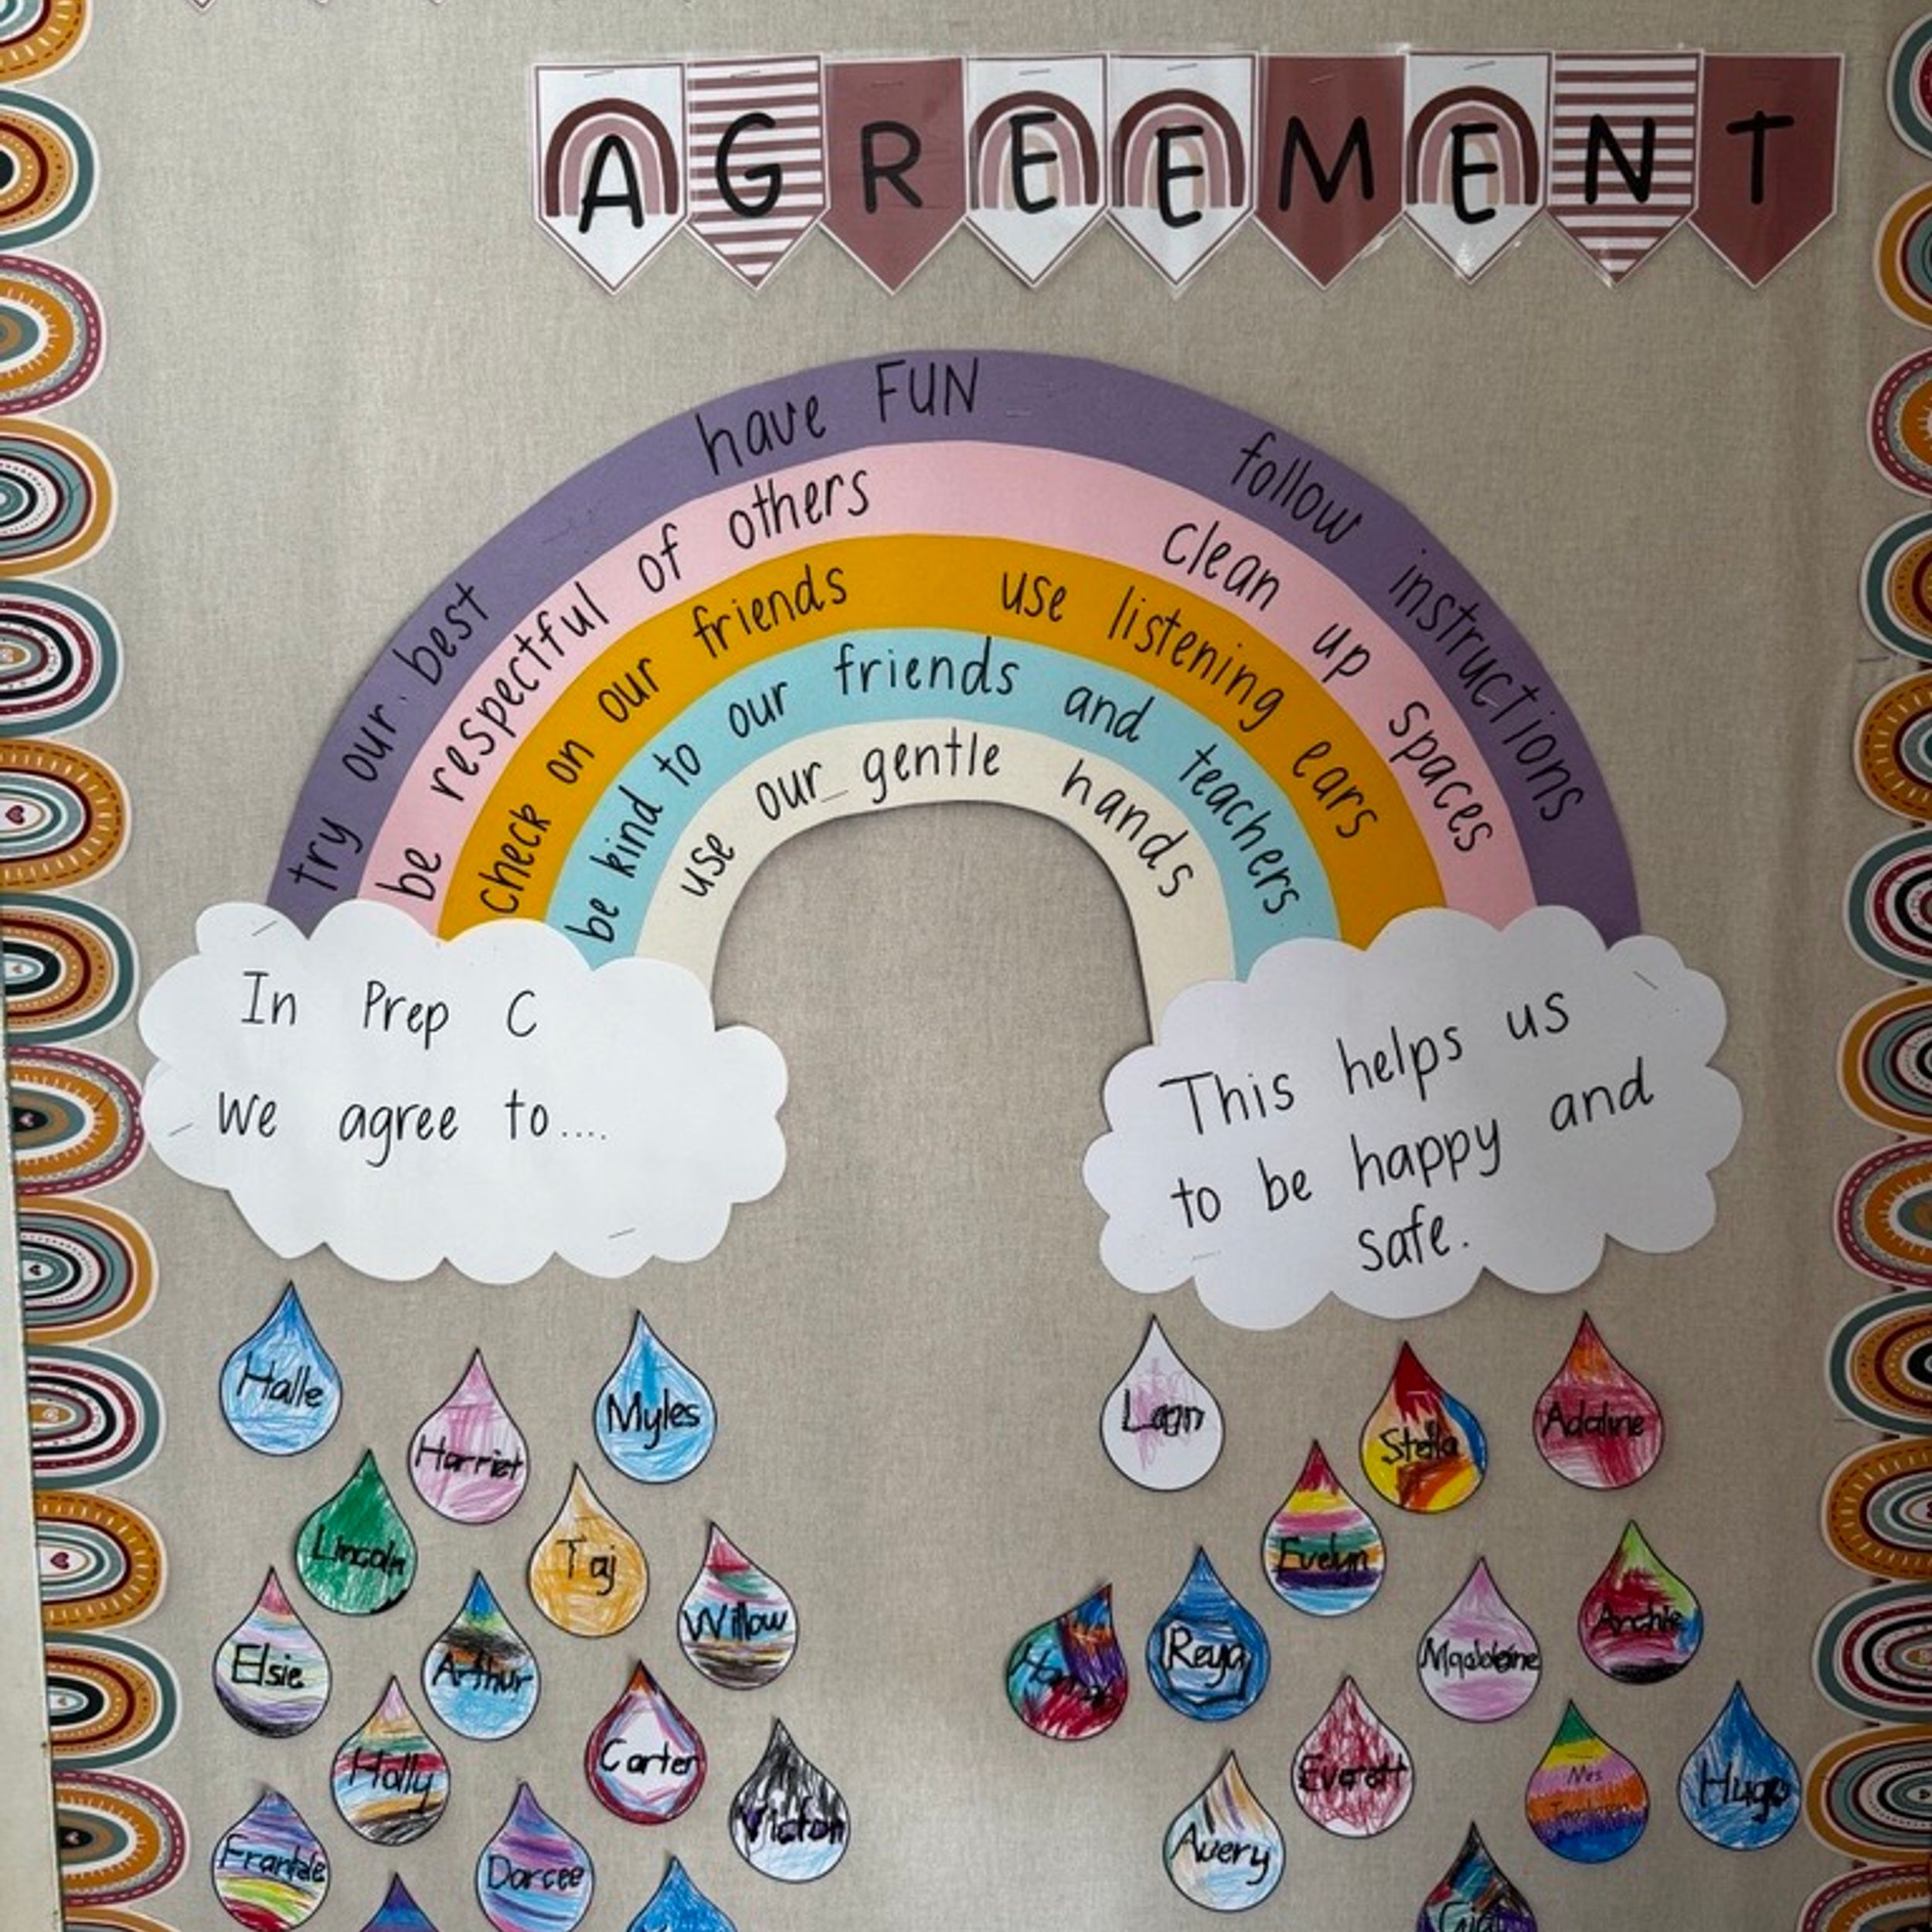 AGREEMENT
try our best have FUN follow instructions
be respectful of others clean up spaces
check on our friends use listening ears
be kind to our friends and teachers
use our gentle hands
In Prep C
We agree to....
This helps us
to be happy and
safe.
Halle
Harriet
Myles
Lincoln
Taj
Willow
Elsie
Arthur
Holly
Carter
Victor
Darcee
Stella
Adaline
Evelyn
Archie
Reya
Madeleine
Everett
Mrs
Hugo
Avery